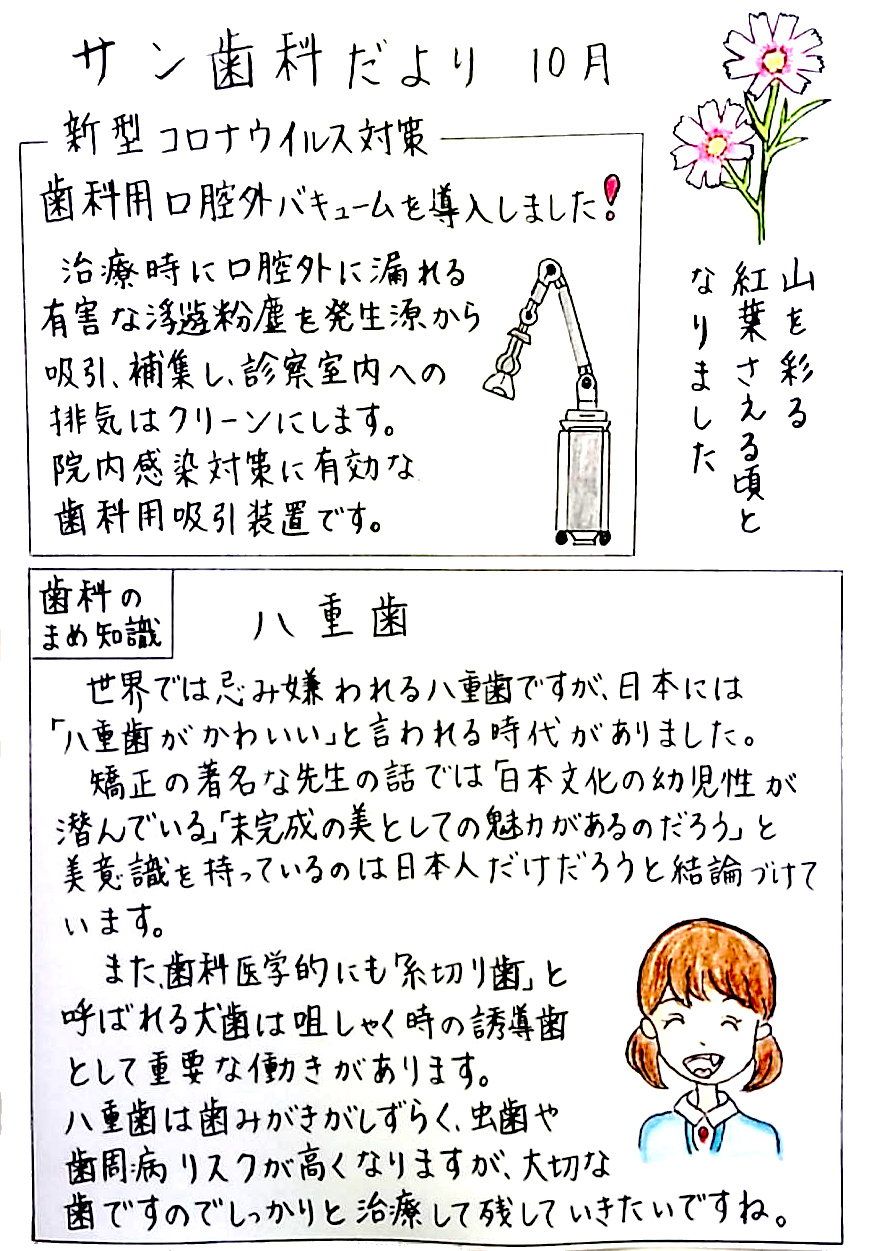 サン歯科だより 10月
新型コロナウイルス対策
歯科用口腔外バキュームを導入しました!
治療時に口腔外に漏れる
有害な浮遊粉塵を発生源から
吸引、補集し、診察室内への
排気はクリーンにします。
院内感染対策に有効な
歯科用吸引装置です。
山を彩る
紅葉さえる頃と
なりました
歯科の
まめ知識
八重歯
世界では忌み嫌われる八重歯ですが、日本には
「八重歯がかわいい」と言われる時代がありました。
矯正の著名な先生の話では「日本文化の幼児性が
潜んでいる」「未完成の美としての魅力があるのだろう」と
美意識を持っているのは日本人だけだろうと結論づけて
います。
また、歯科医学的にも「糸切り歯」と
呼ばれる犬歯は咀しゃく時の誘導歯
として重要な働きがあります。
八重歯は歯みがきがしずらく、虫歯や
歯周病リスクが高くなりますが、大切な
歯ですのでしっかりと治療して残していきたいですね。